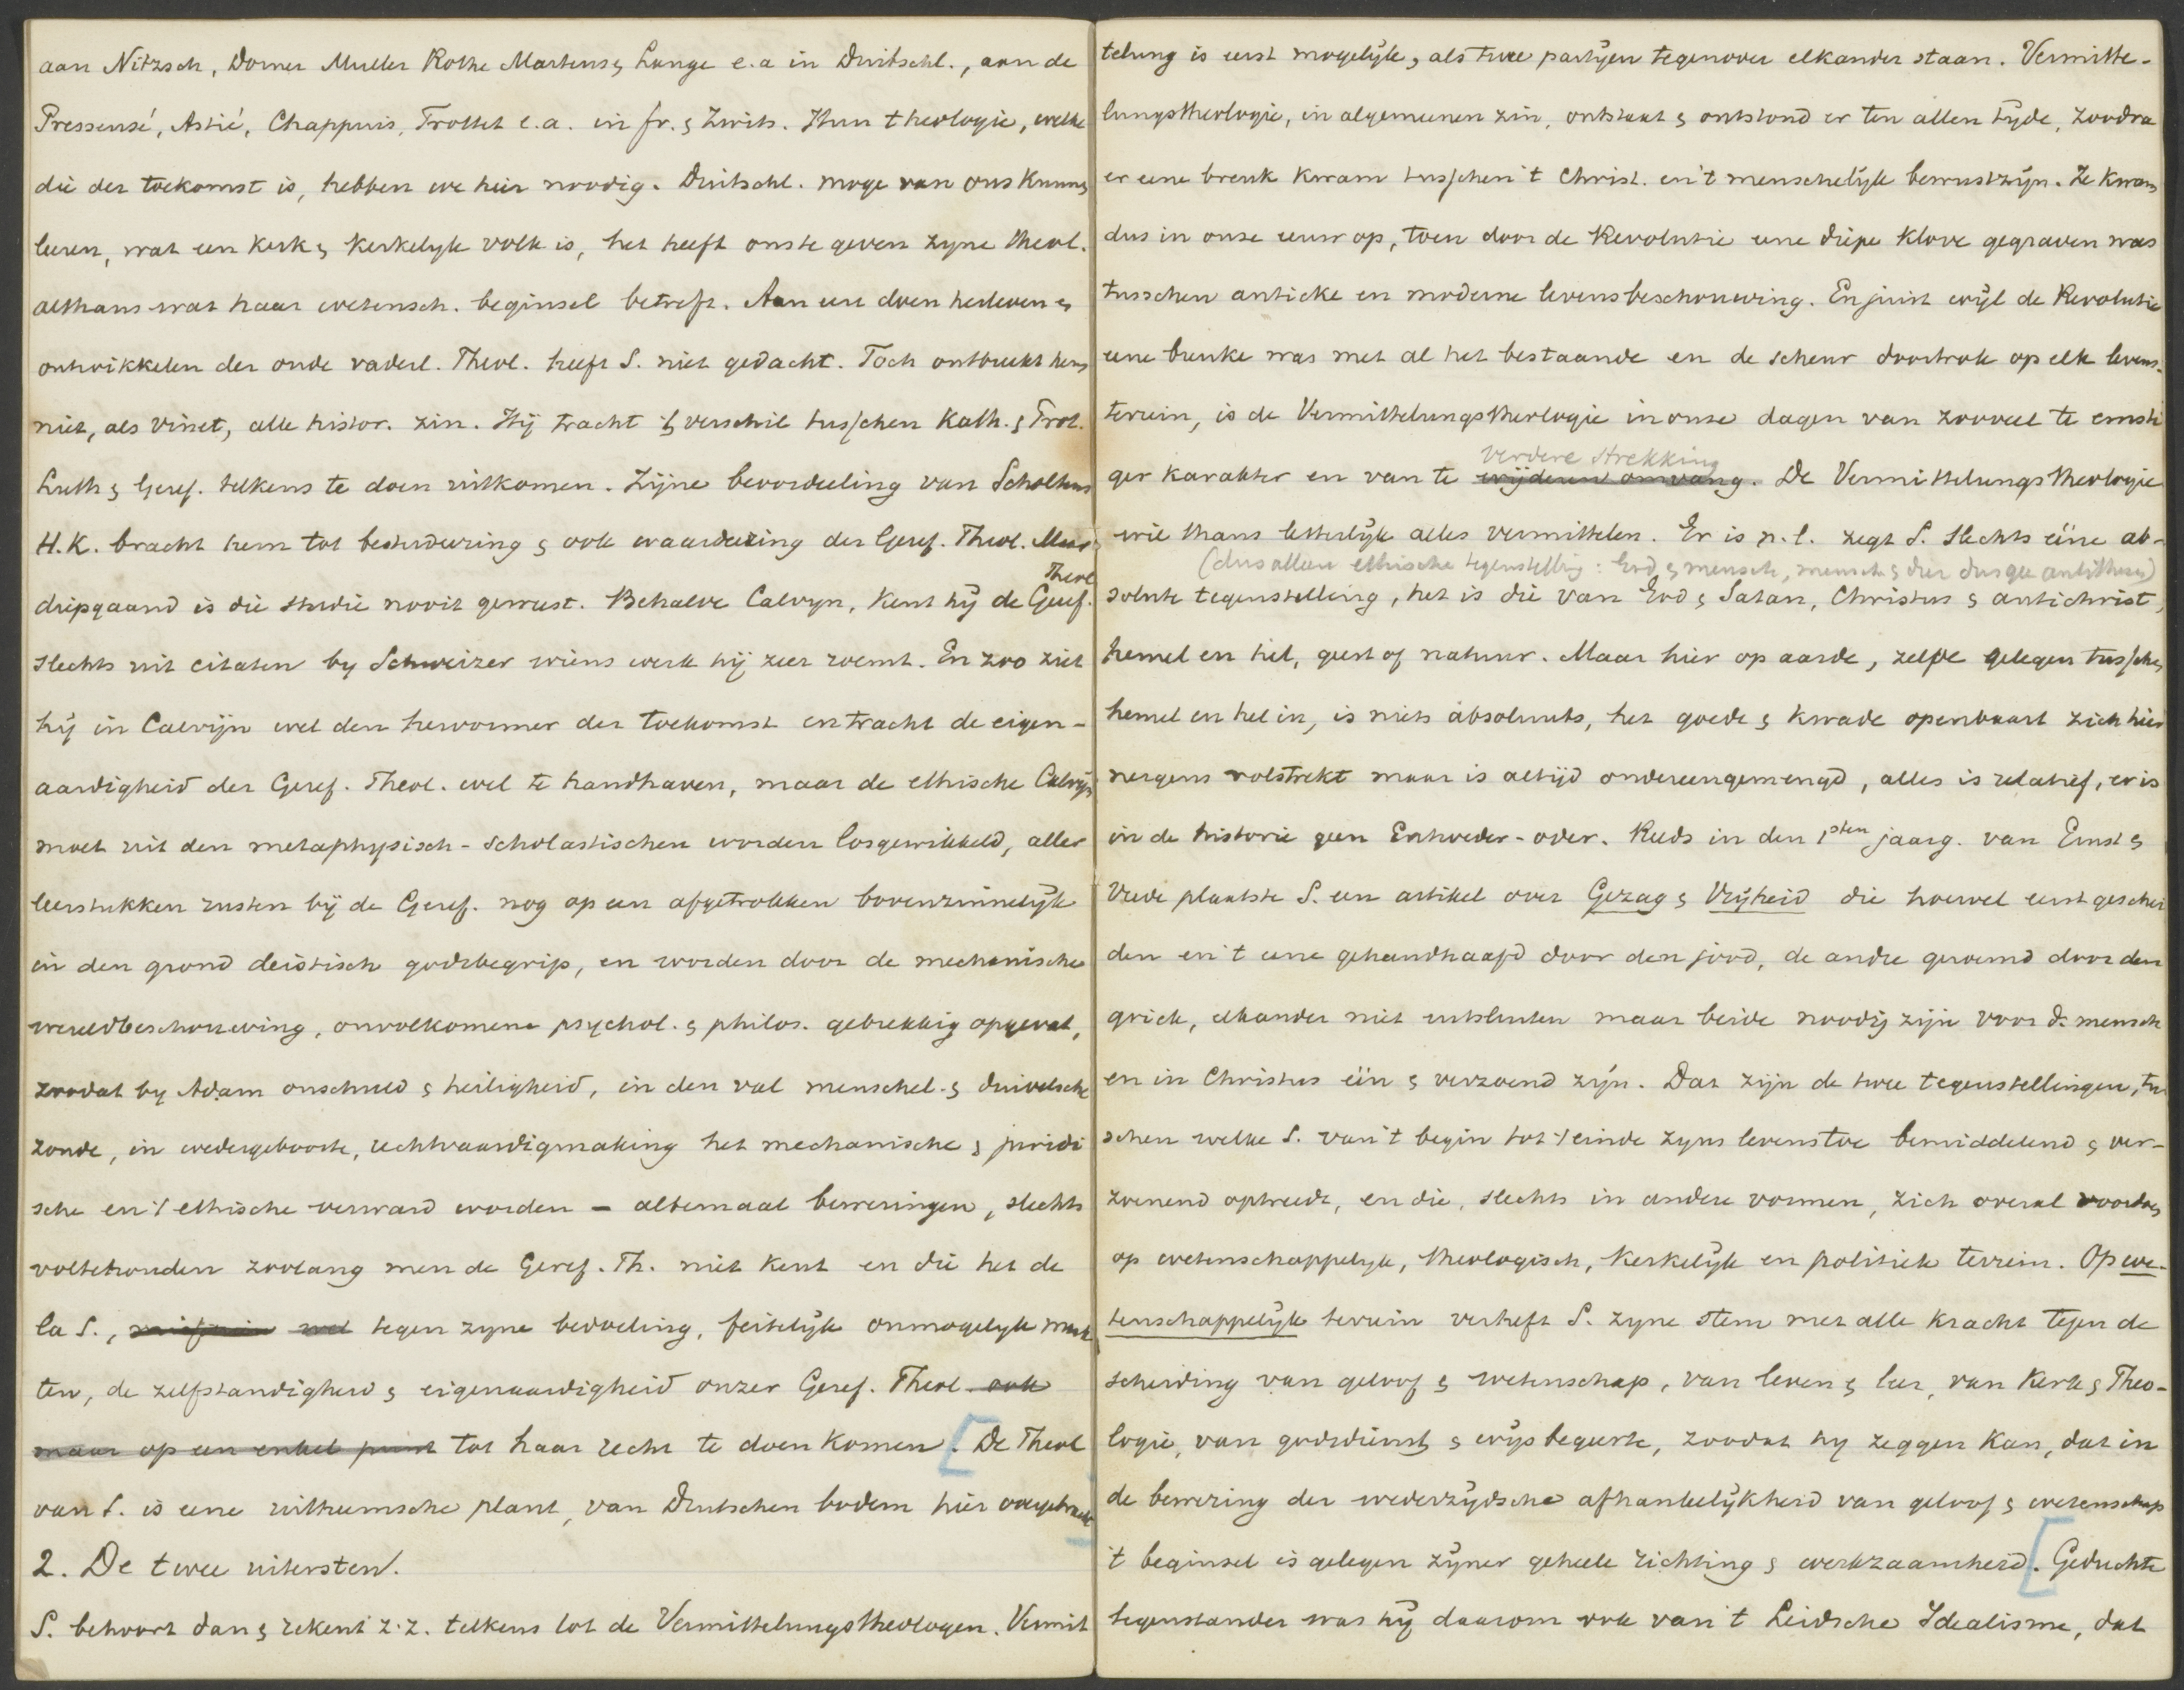 aan Nitzsch, Dorner Muller Rothe Martens, Lange e.a in Duitschl., aan de
Pressensé, Astié, Chappuis, Trottet e.a. in fr. & Zwits. Hun theologie, welke
die der toekomst is, hebben we hier noodig. Duitschl. moge van ons kunnen
leeren, wat een kerk & kerkelyk volk is, het heeft ons te geven zyne theol.
althans wat haar wetensch. beginsel betreft. Aan een doen herleven &
ontwikkelen der oude vaderl. Theol. heeft S. niet gedacht. Toch ontbreekt hem
niet, als Vinet, alle histor. zin. Hij tracht 't verschil tusschen Kath. & Prot.
Luth & Geref. telkens te doen uitkomen. Zijne beoordeeling van Scholtens
H.K. bracht hem tot bestudeering & ook waardeering der Geref. Theol. Maar
Theol
diepgaand is die studie nooit geweest. Behalve Calvyn, kent hij de Geref.
slechts uit citaten by Schweizer wiens werk hij zeer roemt. En zoo ziet
hij in Calvijn wel den hervormer der toekomst en tracht de eigen-
aardigheid der Geref. Theol. wel te handhaven, maar de ethische Calvijn
moet uit den metaphysisch-scholastischen worden losgewikkeld, aller
leerstukken rusten bij de Geref. nog op een afgetrokken bovenzinnelijk
in den grond deistisch godsbegrip, en worden door de mechanische
wereldbeschouwing, onvolkomene psychol. & philos. gebrekkig opgevat,
zoodat by Adam onschuld & heiligheid, in den val menschel. & duivelsche
zonde, in wedergeboorte, rechtvaardigmaking het mechanische & juridi
sche en 't ethische verward worden – altemaal beweringen, slechts
voltehouden zoolang men de Geref. Th. niet kent en die het de
la S., wel tegen zyne bedoeling, feitelijk onmogelyk maak
ten, de zelfstandigheid & eigenaardigheid onzer Geref. Theol ook
maar op een enkel punt tot haar recht te doen komen. [De Theol
van S. is eene uitheemsche plant, van Duitschen bodem hier overgebracht
2. De twee uitersten.
S. behoort dan & rekent z.z. telkens tot de Vermittelungstheologen. Vermit
telung is eerst mogelijk, als twee partijen tegenover elkander staan. Vermitte-
lungstheologie, in algemeenen zin, ontstaat & ontstond er ten allen tijde, zoodra
er eene breuk kwam tusschen 't Christ. en 't menschelijk bewustzijn. Ze kwam
dus in onze eeuw op, toen door de Revolutie eene diepe klove gegraven was
tusschen antieke en moderne levensbeschouwing. En juist wijl de Revolutie
eene breuke was met al het bestaande en de scheur doortrok op elk levens-
terrein, is de Vermittelungstheologie in onze dagen van zooveel te ernsti
verdere strekking
ger karakter en van te wijderen omvang. De Vermittelungstheologie
wil thans letterlijk alles vermittelen. Er is n.l. zegt S. slechts ééne ab-
(dus alleen ethische tegenstelling: God & mensch, mensch & dier dus geen antithese)
solute tegenstelling, het is die van God & Satan, Christus & antichrist,
hemel en hel, geest of natuur. Maar hier op aarde, zelve gelegen tusschen
hemel en hel in, is niets absoluuts, het goede & kwade openbaart zich hier
nergens volstrekt maar is altijd ondereengemengd, alles is relatief, er is
in de historie geen Entweder-oder. Reeds in den 1sten jaarg. van Ernst &
Vrede plaatste S. een artikel over Gezag & Vrijheid die hoewel eerst geschei
den en 't eene gehandhaafd door den jood, de andre geroemd door den
griek, elkander niet uitsluiten maar beide noodig zijn voor d. mensch
en in Christus één & verzoend zijn. Dat zijn de twee tegenstellingen, tus
schen welke S. van 't begin tot 't einde zyns levens toe bemiddelend & ver-
zoenend optreedt, en die, slechts in andere vormen, zich overal voordoen
op wetenschappelyk, theologisch, kerkelijk en politiek terrein. Op we-
tenschappelijk terrein verheft S. zyne stem met alle kracht tegen de
scheiding van geloof & wetenschap, van leven & leer, van kerk & Theo-
logie, van godsdienst & wijsbegeerte, zoodat hy zeggen kan, dat in
de bewering der wederzijdsche afhankelijkheid van geloof & wetenschap
't beginsel is gelegen zijner geheele richting & werkzaamheid. [Geduchte
tegenstander was hij daarom ook van 't Leidsche Idealisme, dat